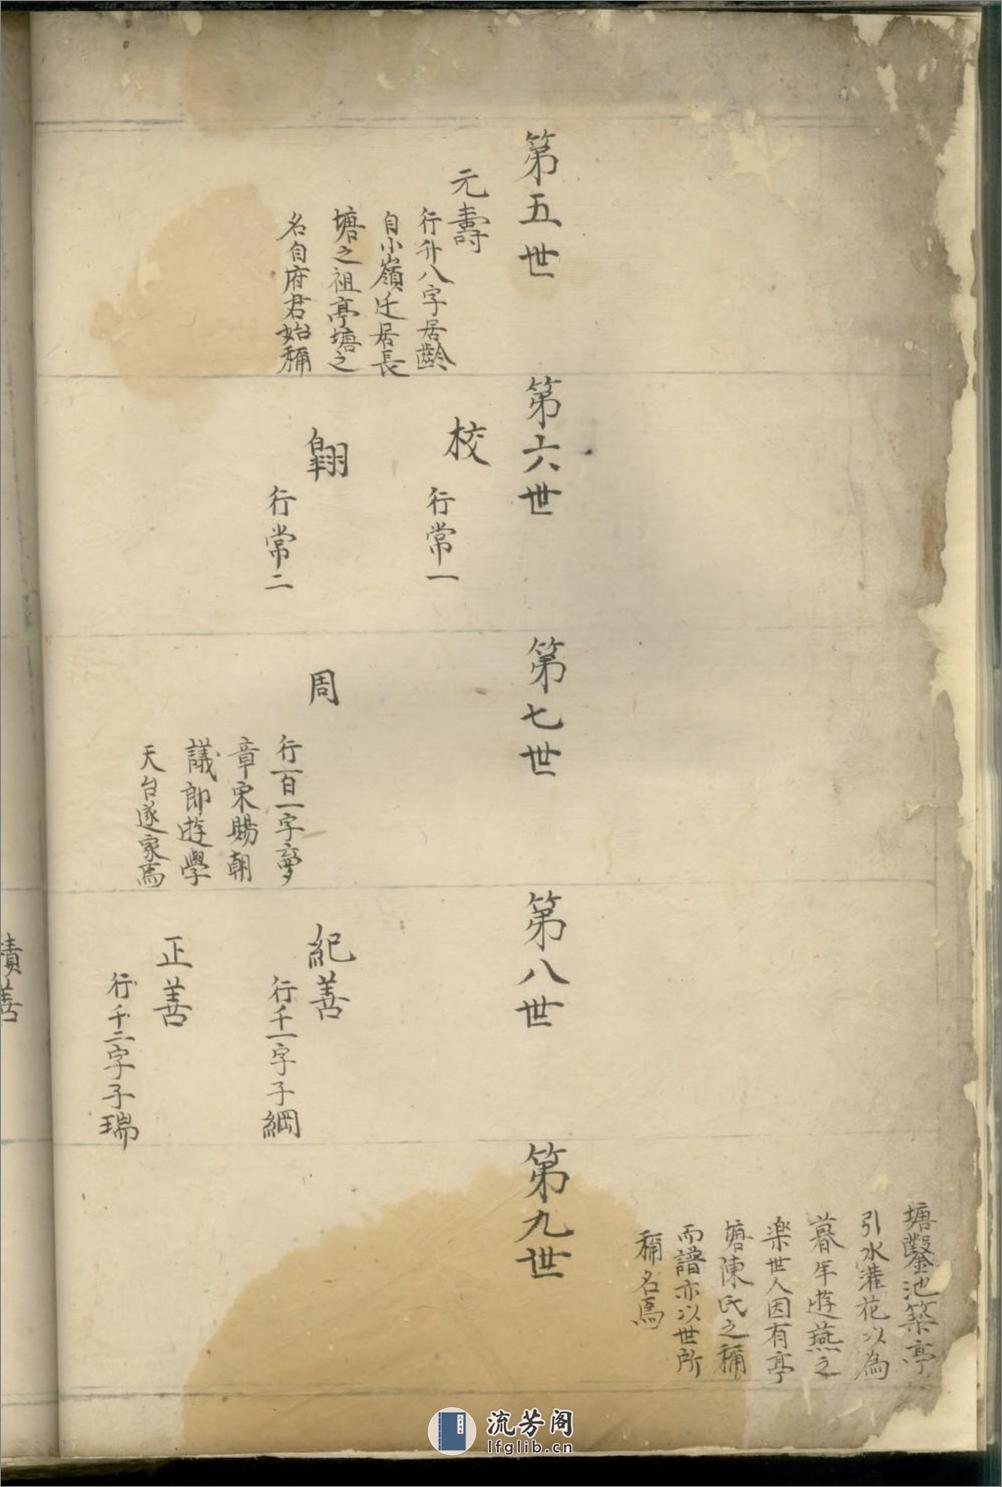 塘鑿池築亭
引水灌花以為
暮年遊燕之
楽世人因有亭
塘陳氏之稱
而譜亦以世所
稱名焉
第五世
元壽
行升八字居齡
自小嶺迁居長
塘之祖亭塘之
名自府君始稱
第六世
校
行常一
翶
行常二
第七世
周
行百一字夢
章宋賜朝
議郎遊學
天台遂家焉
第八世
紀善
行千一字子綱
正善
行千二字子瑞
積善
第九世
流芳阁
lfglib.cn